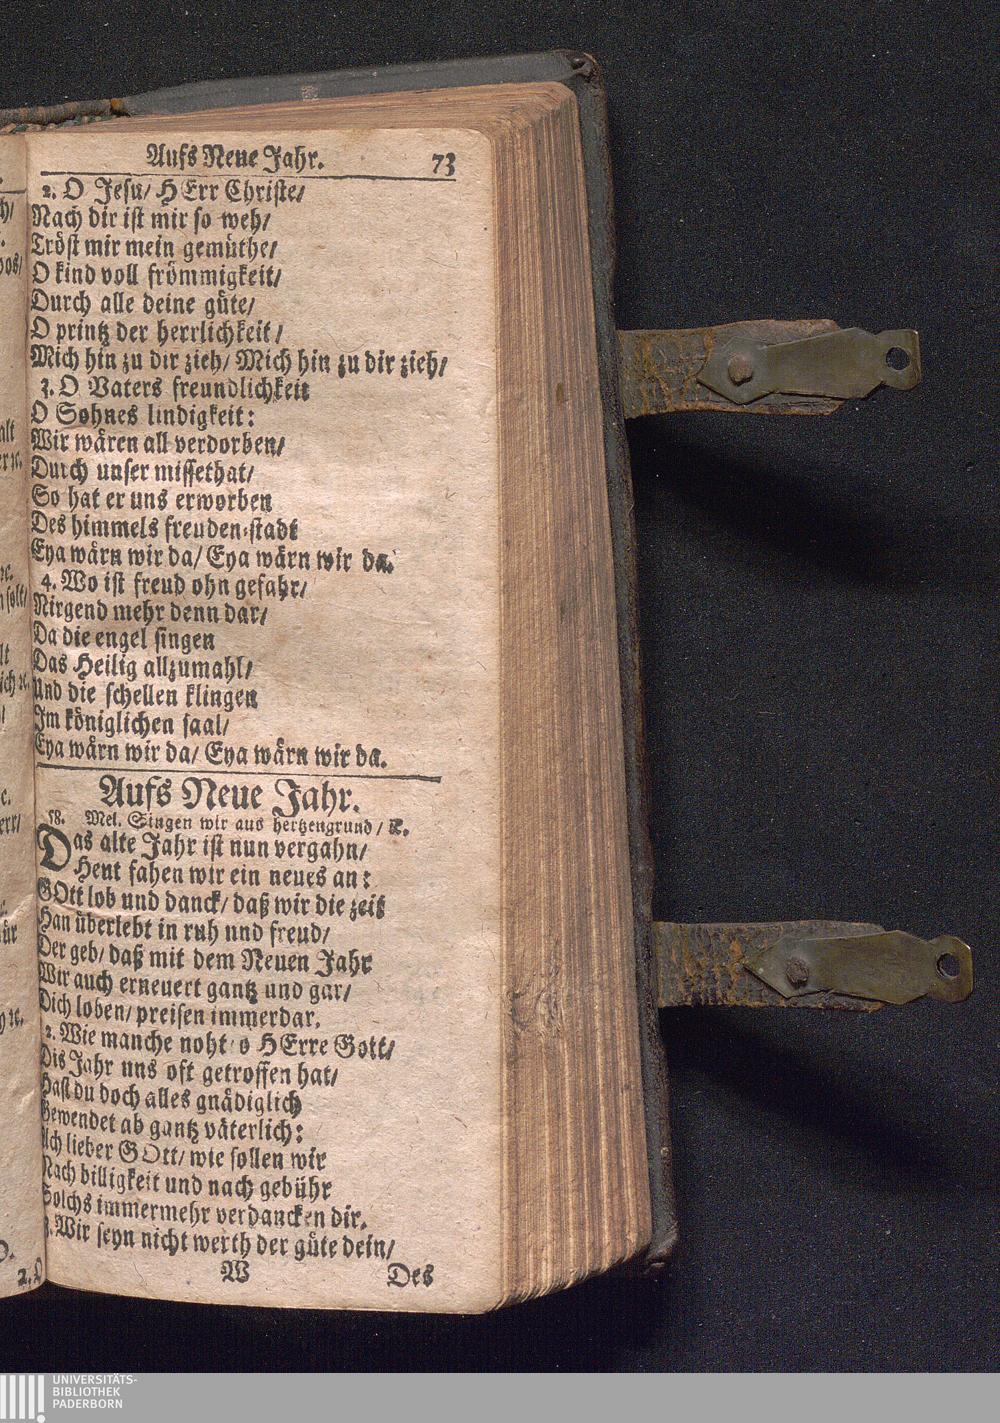 Aufs Neue Jahr. 73
2. O Jesu/ HErr Christe/
Nach dir ist mir so weh/
Tröst mir mein gemüthe/
O kind voll frömmigkeit/
Durch alle deine güte/
O printz der herrlichkeit/
Mich hin zu dir zieh/ Mich hin zu dir zieh/
3. O Vaters freundlichkeit
O Sohnes lindigkeit:
Wir wären all verdorben/
Durch unser missethat/
So hat er uns erworben
Des himmels freuden-stadt
Eya wärn wir da/ Eya wärn wir da.
4. Wo ist freud ohn gefahr/
Nirgend mehr denn dar/
Da die engel singen
Das Heilig allzumahl/
Und die schellen klingen
Im königlichen saal/
Eya wärn wir da/ Eya wärn wir da.
Aufs Neue Jahr.
58. Mel. Singen wir aus hertzengrund/ ꝛc.
Das alte Jahr ist nun vergahn/
Heut fahen wir ein neues an:
GOtt lob und danck/ daß wir die zeit
Han überlebt in ruh und freud/
Der geb/ daß mit dem Neuen Jahr
Wir auch erneuert gantz und gar/
Dich loben/ preisen immerdar.
2. Wie manche noht/ o HErre Gott/
Dis Jahr uns oft getroffen hat/
Hast du doch alles gnädiglich
Gewendet ab gantz väterlich:
Ach lieber GOtt/ wie sollen wir
Nach billigkeit und nach gebühr
Solchs immermehr verdancken dir.
3. Wir seyn nicht werth der güte dein/
W Des
UNIVERSITÄTS-
BIBLIOTHEK
PADERBORN